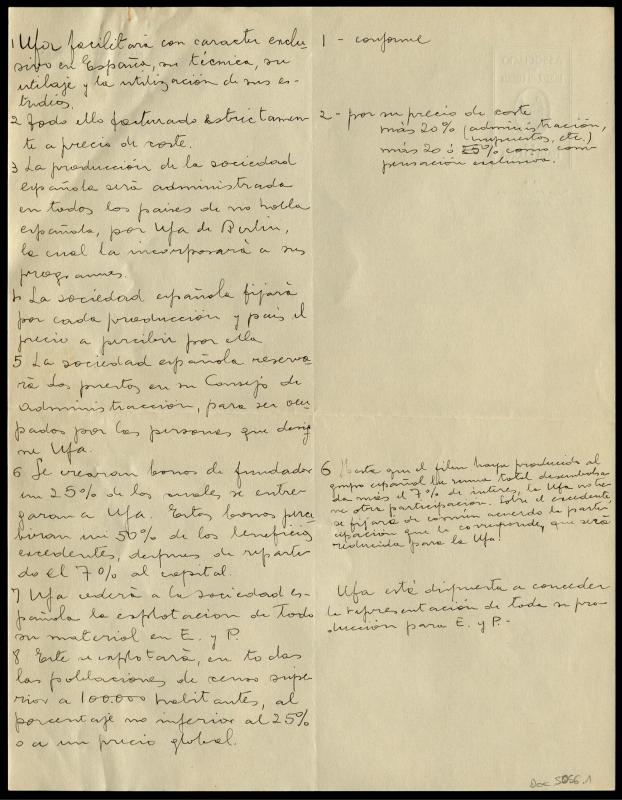 1 Ufa facilitará con caracter exclu-
sivo en España, su técnica, su
utilaje y la utilización de sus es-
tudios.
2 Todo ello facturado estrictamen-
te a precio de coste.
3 La producción de la sociedad
española será administrada
en todos los países de no habla
española, por Ufa de Berlin,
la cual la incorporará a sus
programas.
4 La sociedad española fijará
por cada producción y país el
precio a percibir por ella
5 La sociedad española reserva-
rá dos puestos en su Consejo de
administracción, para ser ocu-
pados por las personas que desig-
ne Ufa.
6 Se crearan bonos de fundador
un 25% de los cuales se entre-
garan a Ufa. Estos bonos perci-
biran un 50% de los beneficios
excedentes, despues de reparti-
do el 7% al capital.
7 Ufa cederá a la sociedad es-
pañola la explotacion de todo
su material en E. y P.
8 Este se explotará, en todas
las poblaciones de censo supe-
rior a 100.000 habitantes, al
porcentaje no inferior al 25%
o a un precio global.
1 - conforme
2 - por su precio de coste
más 20% (administración,
impuestos, etc.)
más 20 ó 25% como com-
pensación exclusiva.
6 Hasta que el film haya producido al
grupo español la suma total desembolsa-
da más el 7% de interés, la Ufa no tie-
ne otra participación. Sobre el excedente,
se fijará de común acuerdo la parti-
cipación que le corresponde, que será
reducida para la Ufa!
Ufa está dispuesta a conceder
la representación de toda su pro-
ducción para E. y P.-
Doc 5056.1